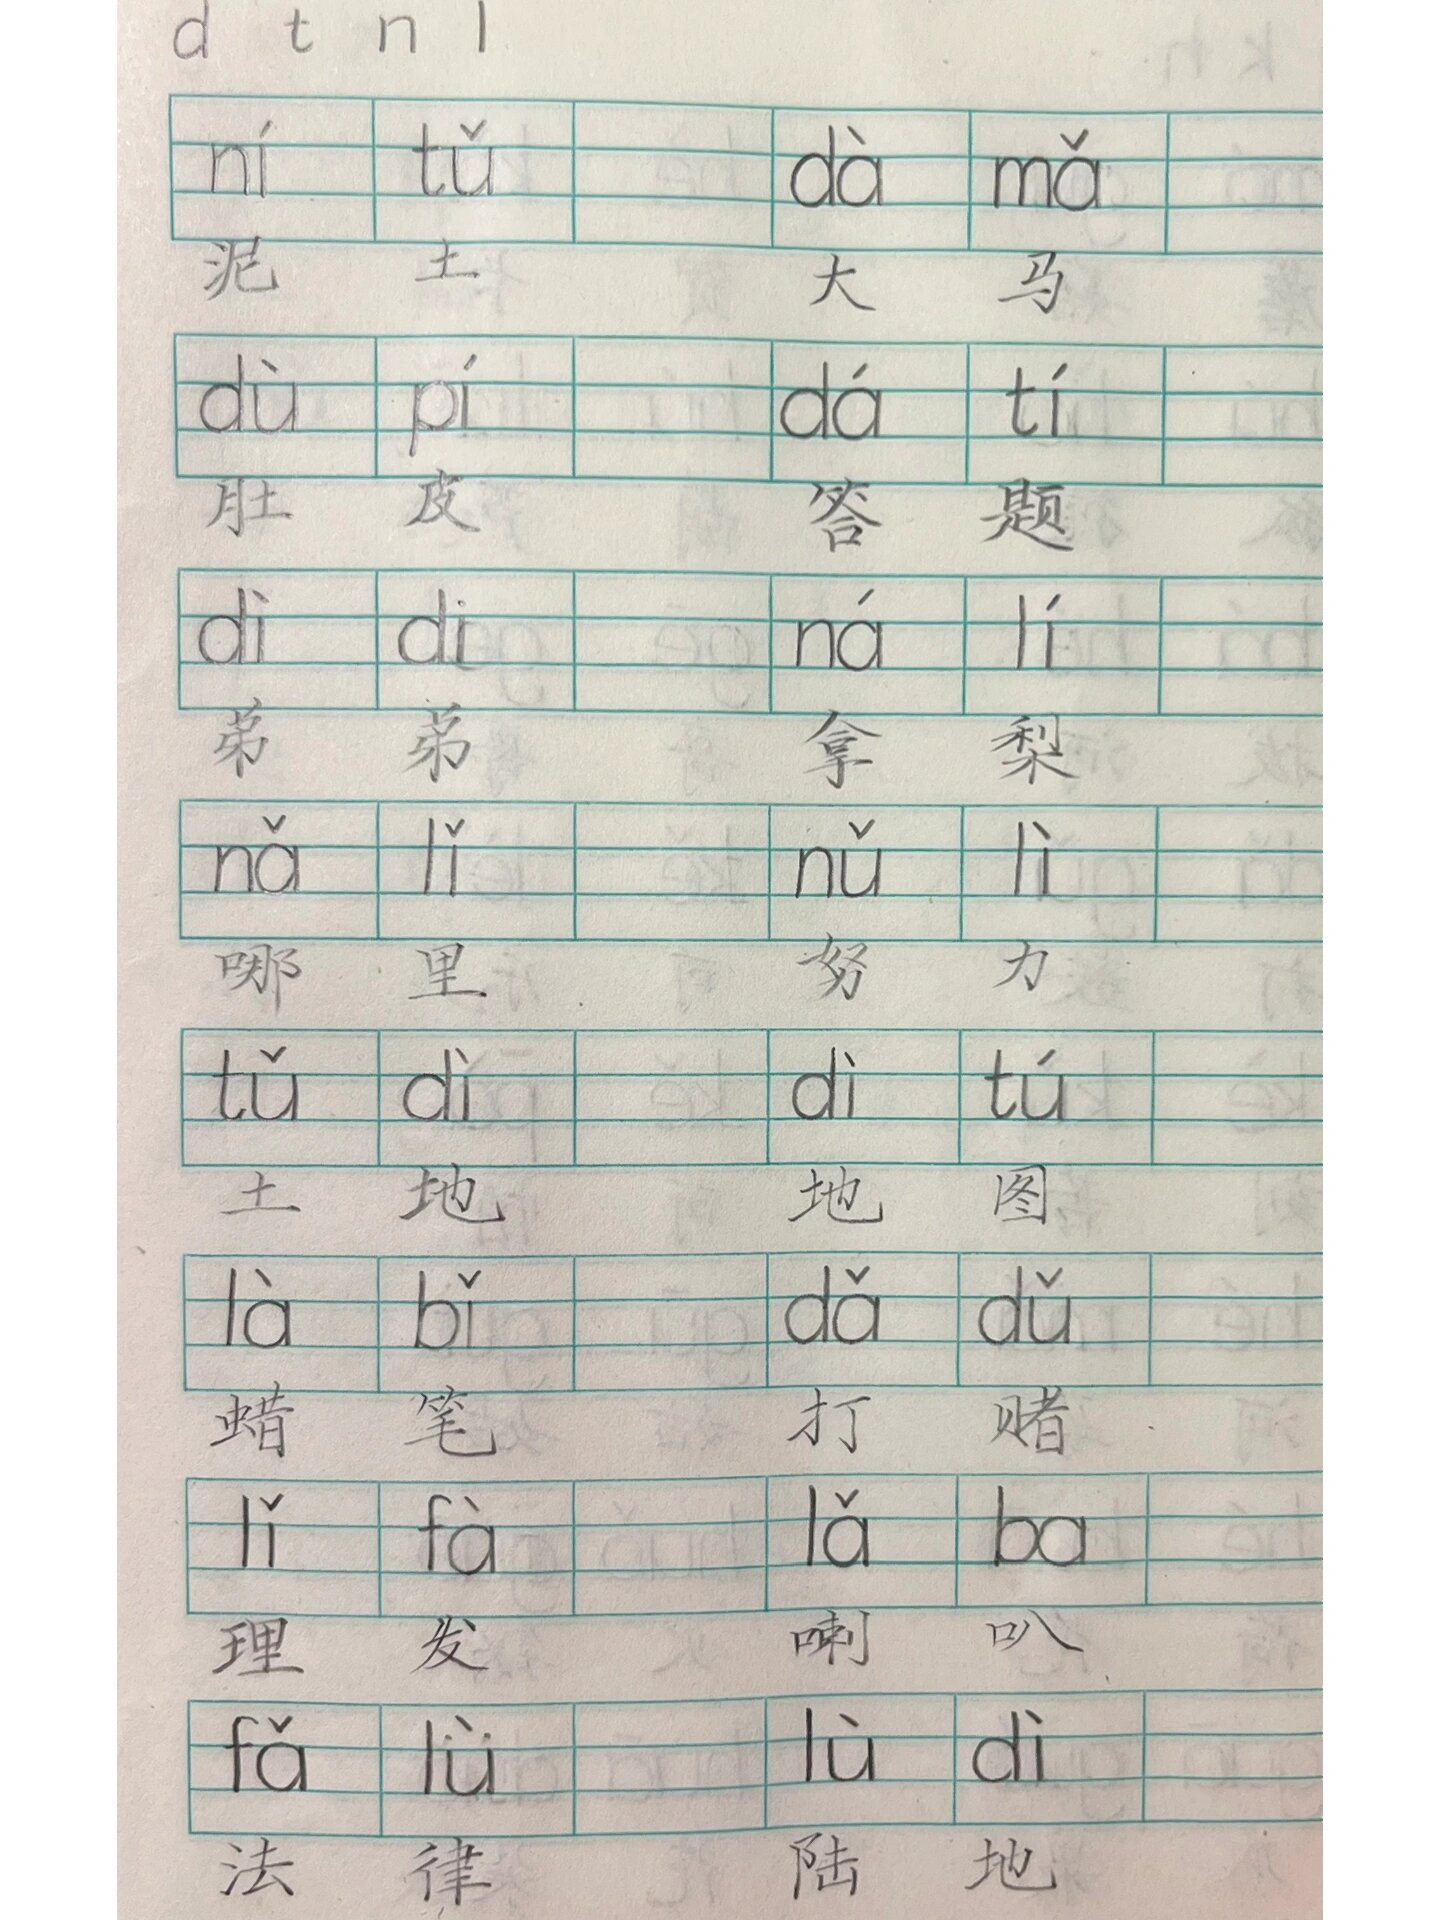 d t n l
ní tǔ dà mǎ
泥 土 大 马
dù pí dá tí
肚 皮 答 题
dì di ná lí
弟 弟 拿 梨
nǎ lǐ nǔ lì
哪 里 努 力
tǔ dì dì tú
土 地 地 图
là bǐ dǎ dǔ
蜡 笔 打 赌
lǐ fà lǎ ba
理 发 喇 叭
fǎ lǜ lù dì
法 律 陆 地